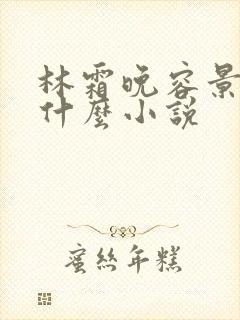 林霜晚容景
什麼小說
蜜絲年糕